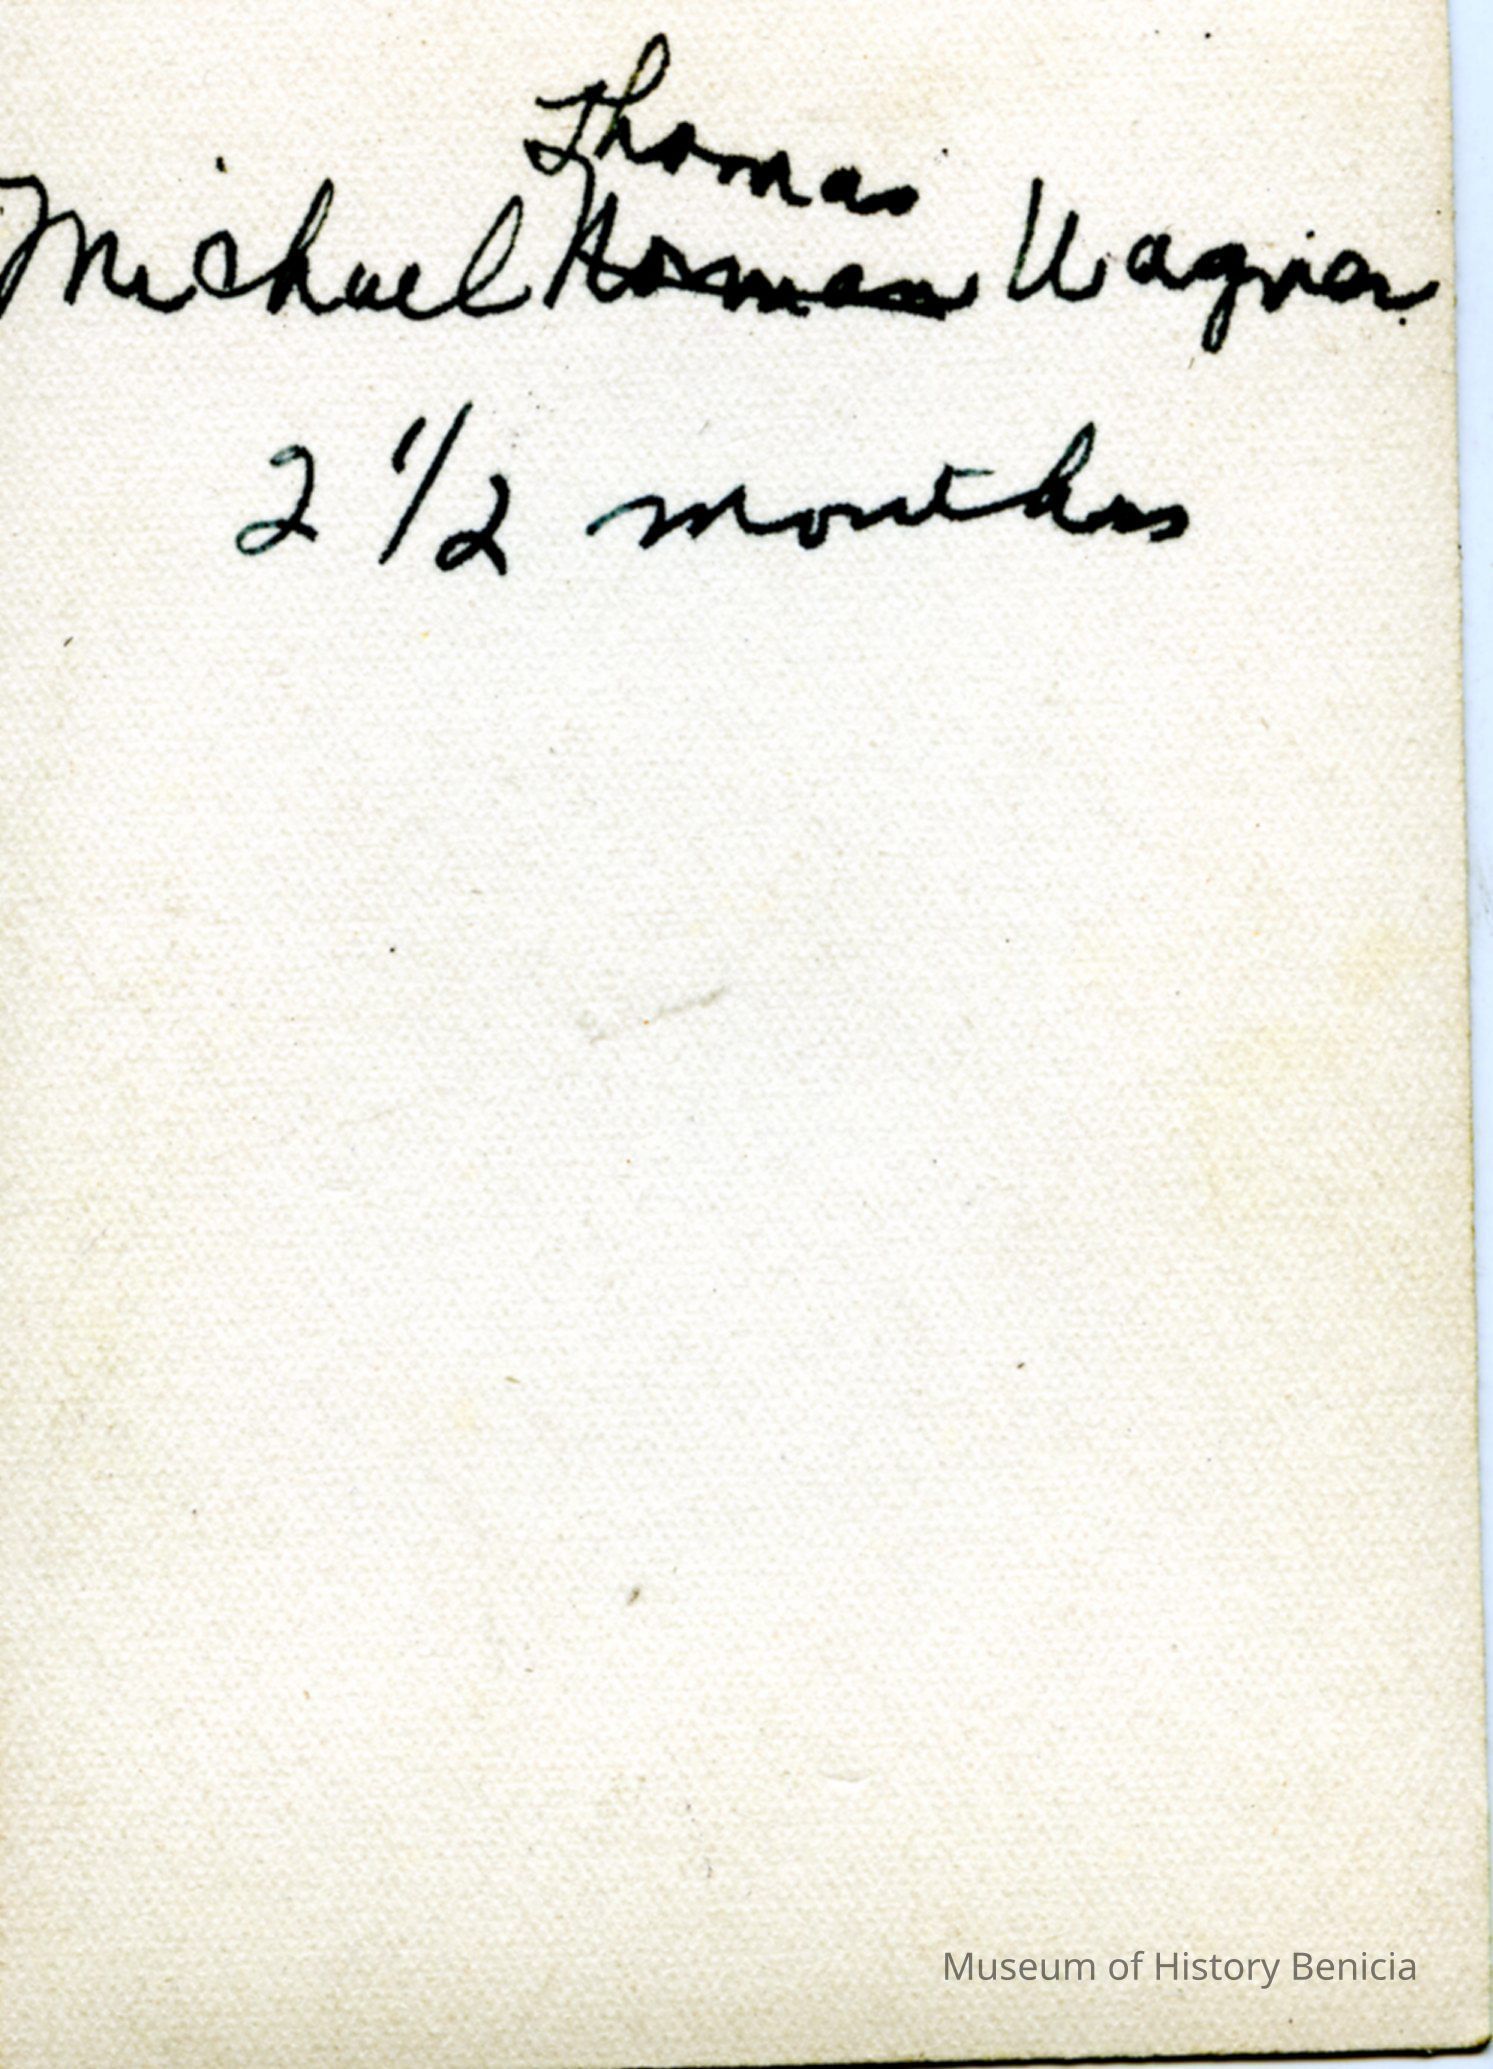 Thomas
Michael Norman Wagner
2 1/2 months
Museum of History Benicia